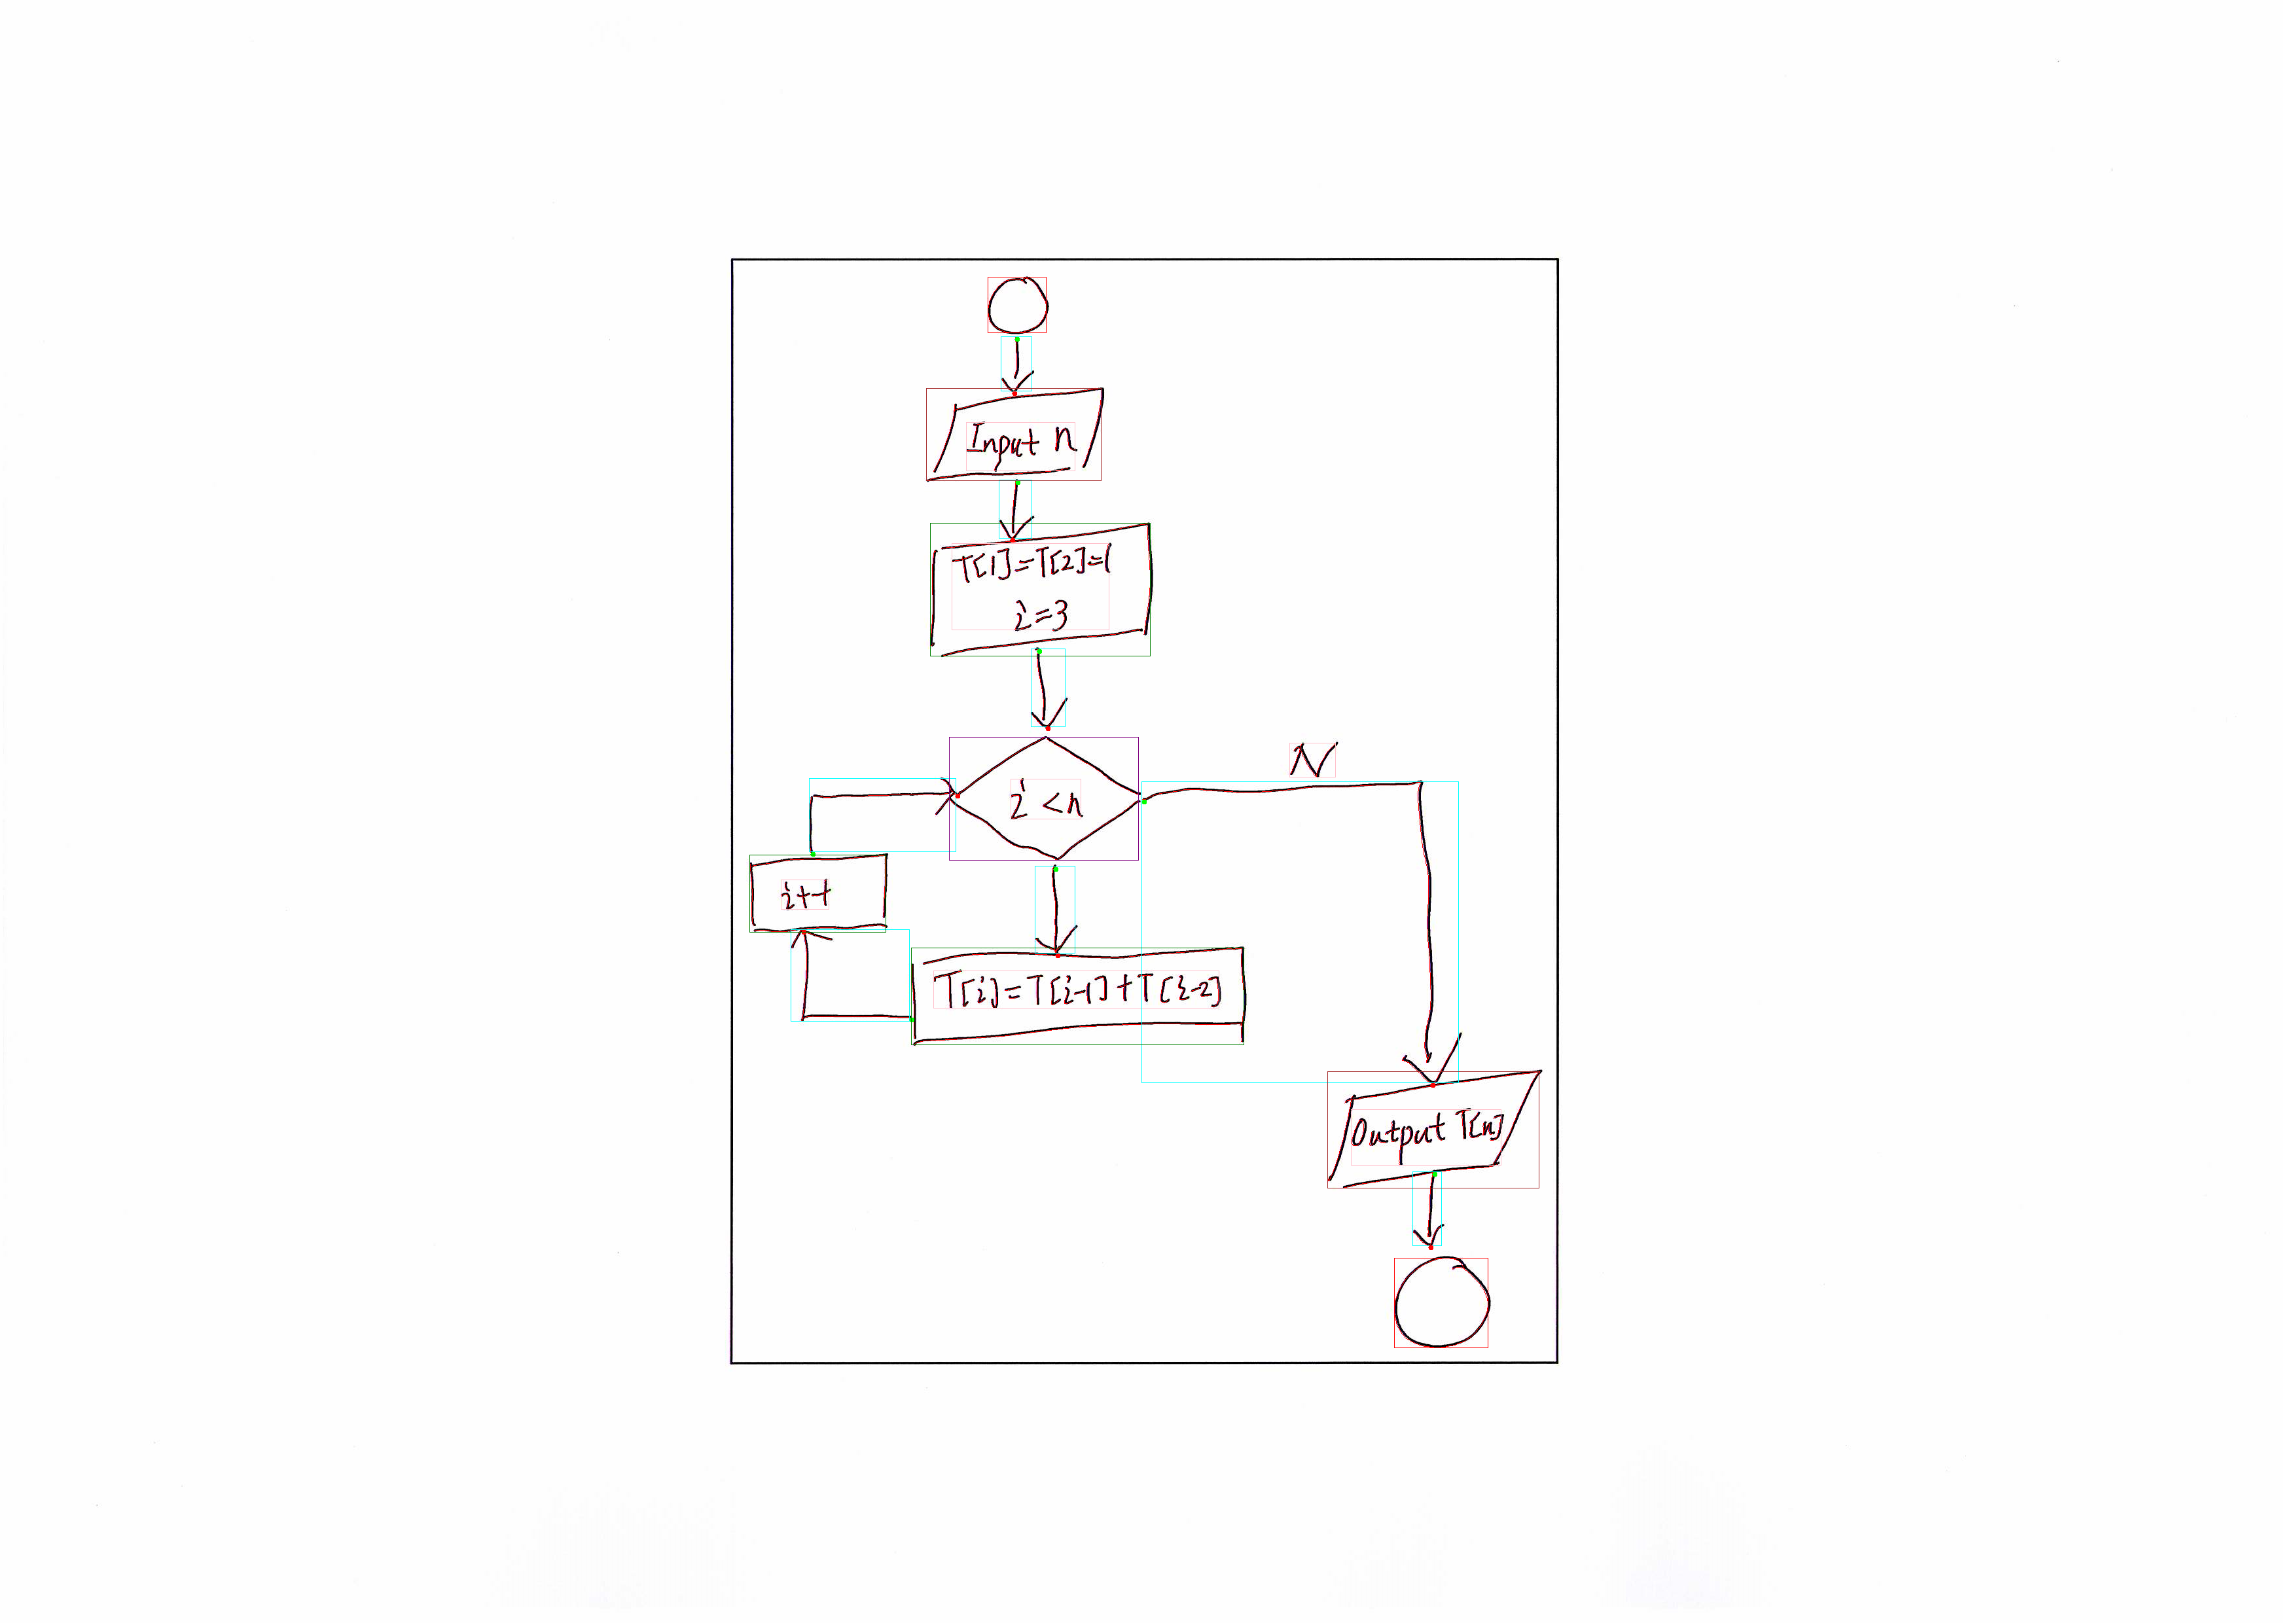 Input n
T[1]=T[2]=1
i=3
N
i<n
i++
T[i]=T[i-1]+T[i-2]
Output T[n]